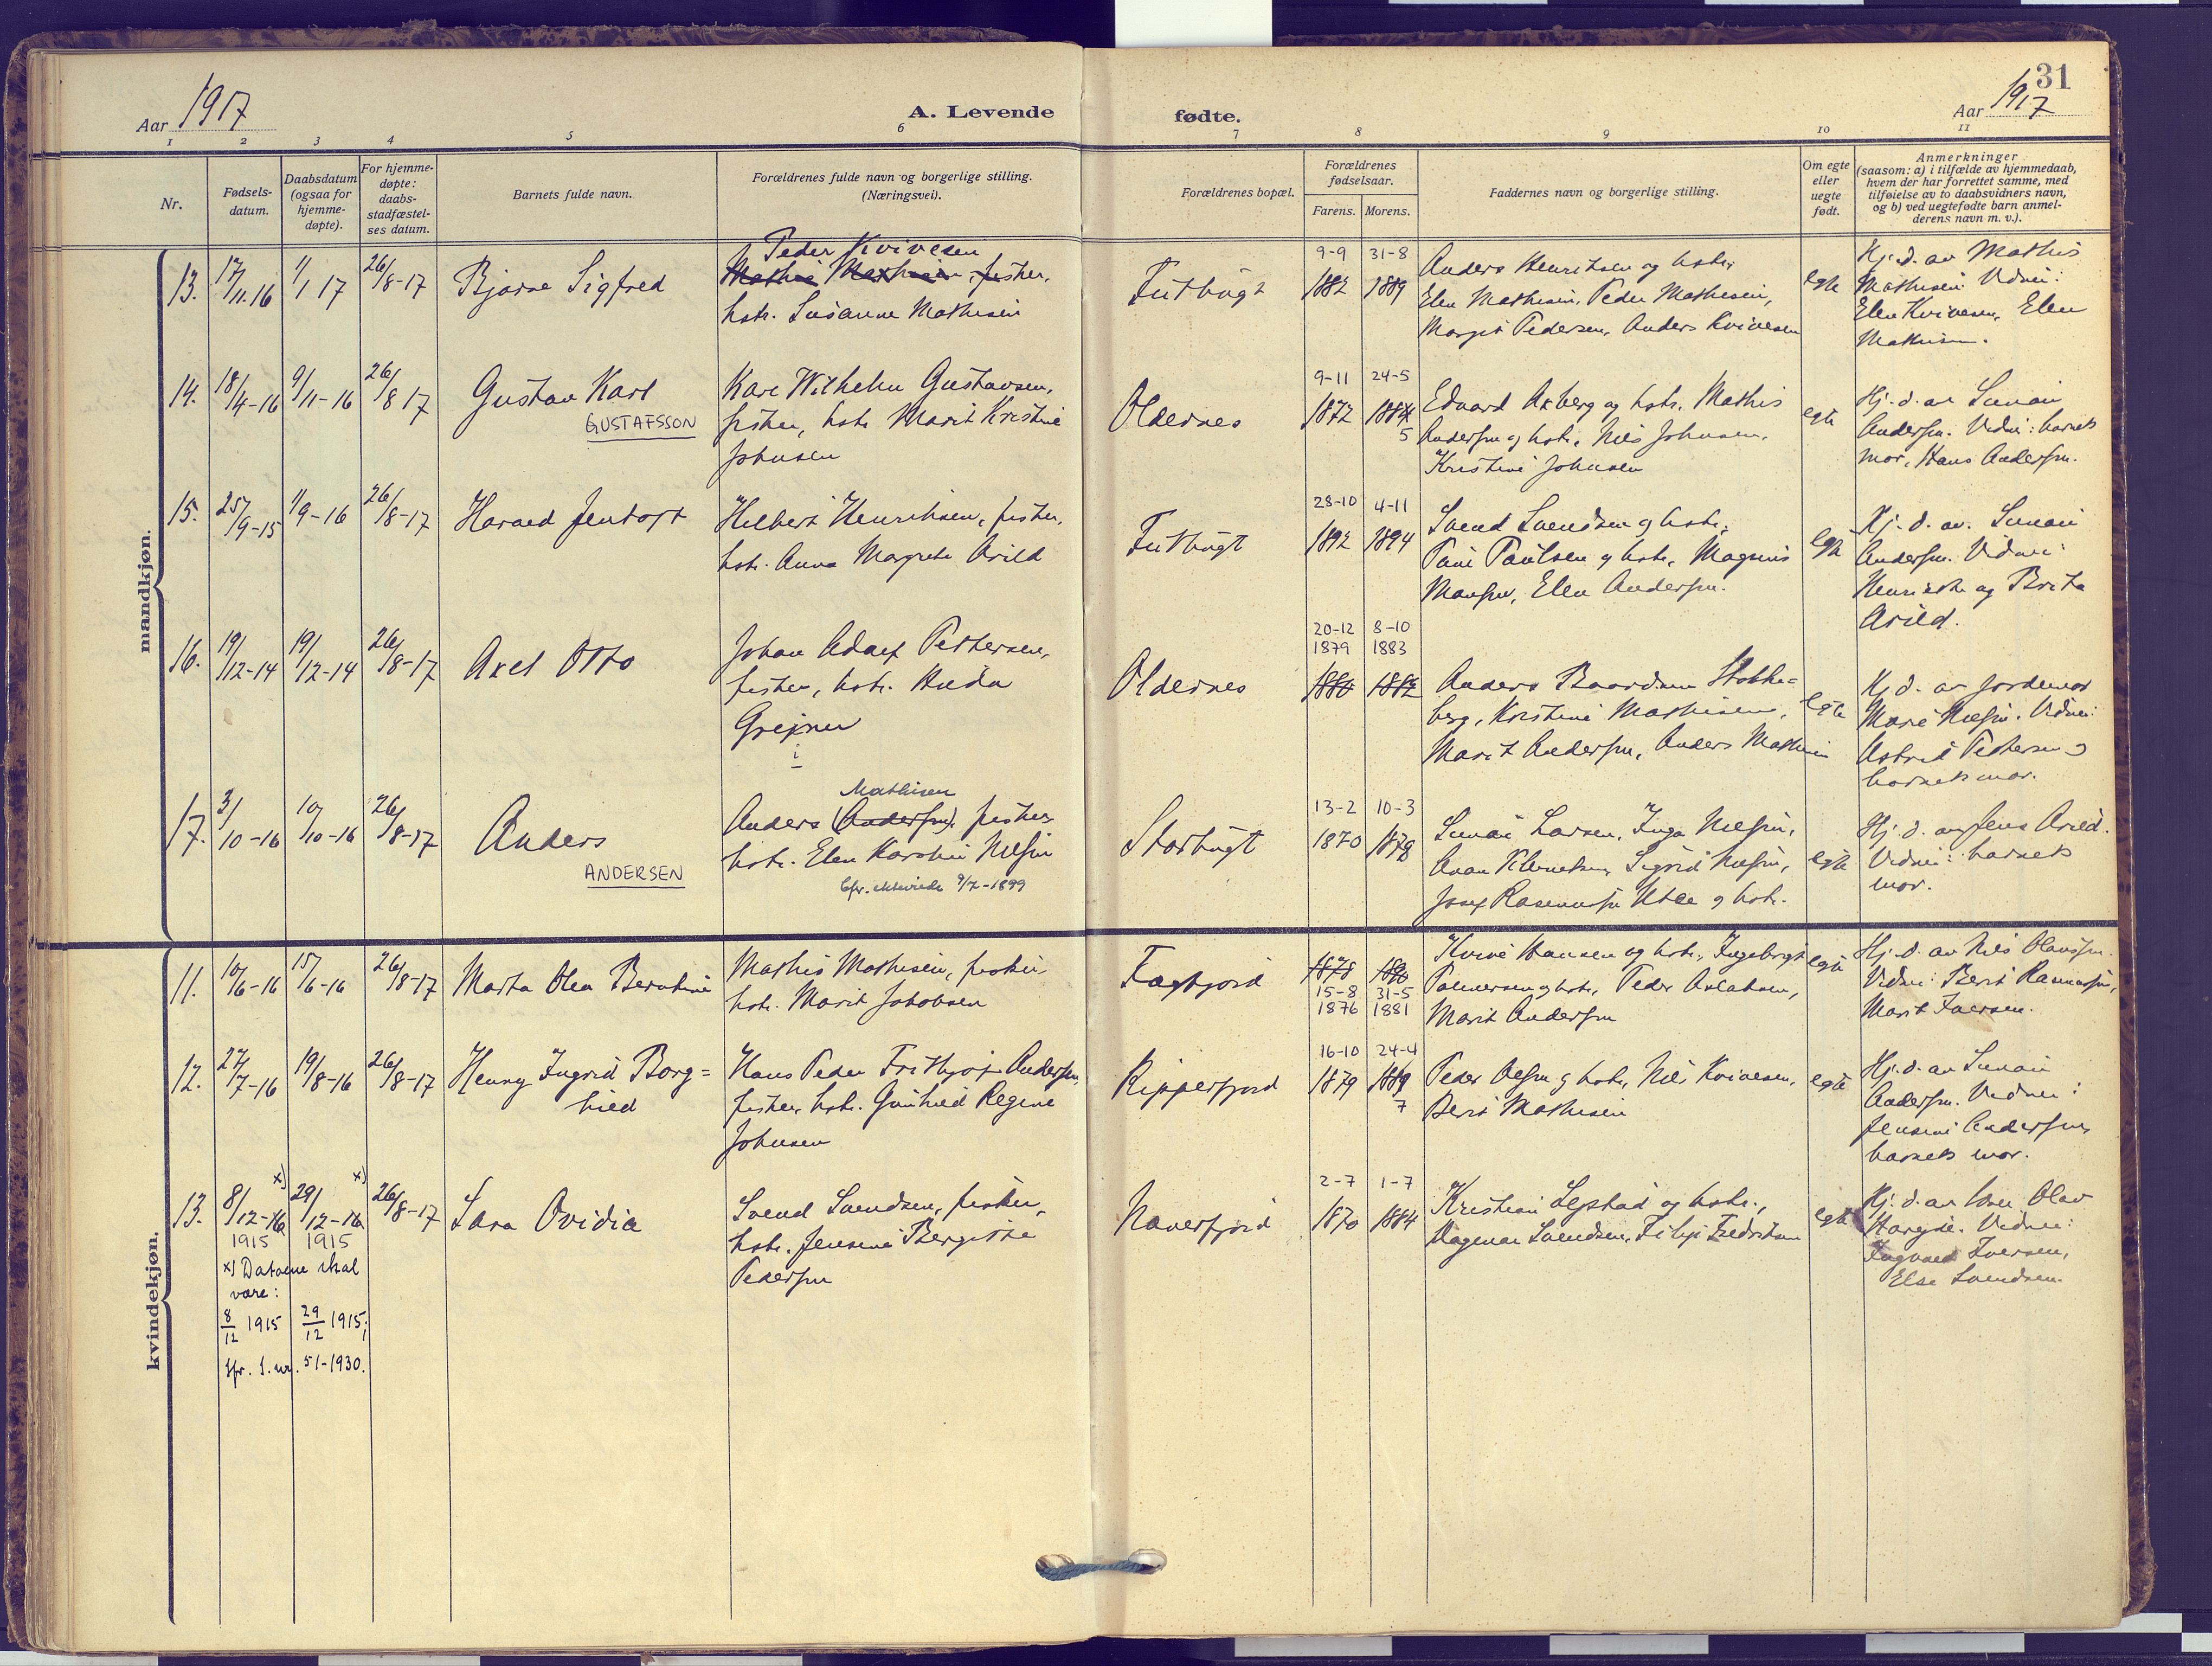 31
Aar 1917
A. Levende
fødte.
Aar 1917
1 2 3 4 5 6 7 8 9 10 11
Nr.
Fødsels-
datum.
Daabsdatum
(ogsaa for
hjemme-
døpte).
For hjemme-
døpte:
daabs-
stadfæstel-
ses datum.
Barnets fulde navn.
Forældrenes fulde navn og borgerlige stilling.
(Næringsvei).
Forældrenes bopæl.
Forældrenes
fødselsaar.
Farens. Morens.
Faddernes navn og borgerlige stilling.
Om egte
eller
uegte
født.
Anmerkninger
(saasom: a) i tilfælde av hjemmedaab,
hvem der har forrettet samme, med
tilføielse av to daabsvidners navn,
og b) ved uegtefødte barn anmel-
derens navn m. v.).
mandkjøn.
13. 17/11.16 1/1 17 26/8-17 Bjarne Sigfred
Peder Kvivesen
fisker,
hstr. Susanne Mathisen
9-9 31-8
1882 1889
Anders Henriksen og hstr.
Elen Mathisen, Peder Mathisen,
Margit Pedersen, Anders Kvivesen
egte
Hj. d. av Mathis
Mathisen Vidner:
Elen Kvivesen, Elen
Mathisen.
14. 18/4-16 9/11-16 26/8 17 Gustav Karl
GUSTAFSSON
Karl Wilhelm Gustavsen,
fisker, hstr. Marit Kristine
Johnsen
Oldernes
9-11 24-5
1872 1884
5
Edvard Akberg og hstr. Mathis
Andersen og hstr. Nils Johnsen,
Kristine Johnsen
egte
Hj. d. av
Andersen. Vidner: barnets
mor, Hans Andersen.
15. 25/9-15 1/9-16 26/8-17 Harald Jentoft
Hilbert Henriksen, fisker,
hstr. Anna Margrete Arild
28-10 4-11
1892 1894
Svend Svendsen og hstr.
Paul Paulsen og hstr. Magnus
Monsen, Elen Andersen.
egte
Hj. d. av.
Andersen. Vidner:
Henrikke og Brita
Arild.
16. 19/12-14 19/12-14 26/8-17 Axel Otto
Johan Adolf Pettersen,
fisker, hstr. Hilda
Grejner
i
Oldernes
20-12 8-10
1879 1883
1880 1882
Anders Baardsen Stokke=
berg, Kristine Mathisen,
Marit Andersen, Anders Mathisen
egte
Hj. d. av jordemor
Marie Nilsen. Vidner:
Astrid Pettersen og
barnets mor.
17. 3/10-16 10/10-16 26/8-17 Anders
ANDERSEN
Mathisen
Anders (Andersen), fisker
hstr. Elen Karstine Nilsen
Cfr. ekteviede 9/7-1899
Storbugt
13-2 10-3
1870 1878
Larsen, Inga Nilsen,
Klemetsen, Sigrid Nilsen,
Josef Rasmussen Utsi og hstr.
egte
Hj. d. av Jens Arild.
Vidner: barnets
mor.
kvindekjøn.
11. 10/6-16 15/6-16 26/8-17 Marta Olea Berntine
Mathis Mathisen, fisker
hstr. Marit Jakobsen
Fægfjord
1878 1880
15-8 31-5
1876 1881
Kvive Hansen og hstr. Ingeborg
Palmersen og hstr, Peder Aslaksen,
Marit Andersen
egte
Hj. d. av Nils Olaussen.
Vidner: Berit Rasmussen,
Marit Iversen.
12. 27/7-16 19/8-16 26/8-17 Henny Ingrid Borg=
hild
Hans Peder Fritjof Andersen,
fisker, hstr. Gunhild Regine
Johnsen
Ripperfjord
16-10 24-4
1879 1889
7
Peder Olsen og hstr. Nils Kvivesen,
Berit Mathisen
egte
Hj. d. av
Andersen. Vidner:
Jensine Andersen,
barnets mor.
13. 8/12-16 x) 29/12-16 x) 26/8-17 Sara Ovidia
1915 1915
x) Datoene skal
være:
8/12 1915 29/12 1915;
Jfr. S.nr. 51-1930.
Svend Svendsen, fisker,
hstr. Jensine Bergitte
Pedersen
Naverfjord
2-7 1-7
1870 1884
Kristian Lystad og hstr.,
Dagmar Svendsen, Filip Fredriksen
egte
Hj. d. av Olav
Vidner:
Ingvald Iversen,
Else Svendsen.